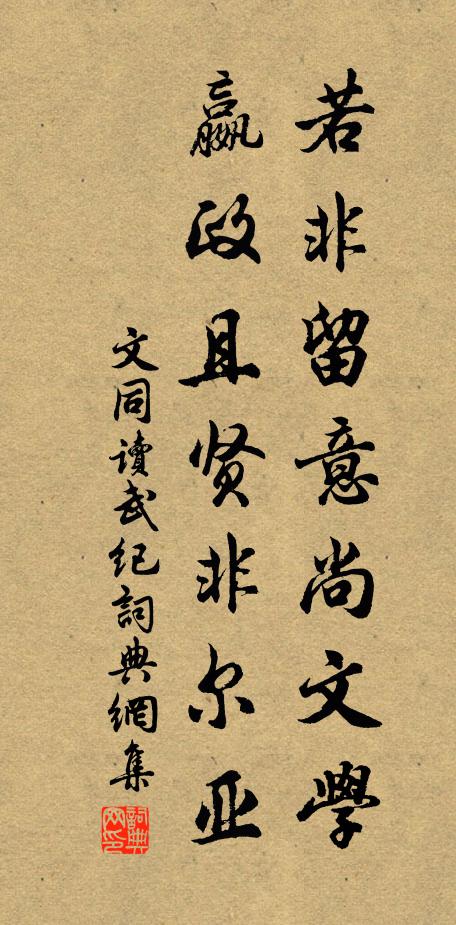 若非留意尚文學
嬴政且贤非尔亚
文同讀武纪詞典網集
詞典網印